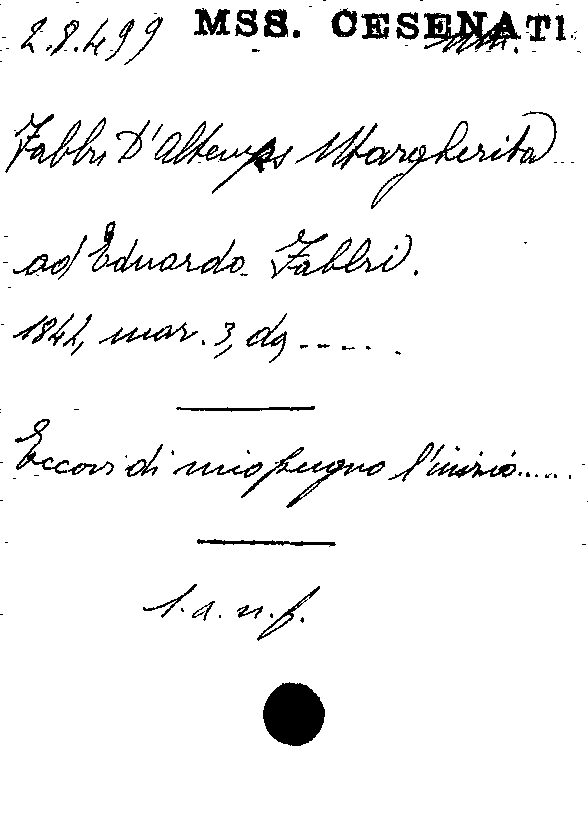 2.8.499 MSS. CESENATI
Fabbri D'Altemps Margherita
ad Eduardo Fabbri.
1842, mar. 3, da .....
Eccovi di mio pugno l'inizio.....
1. a. n. f.